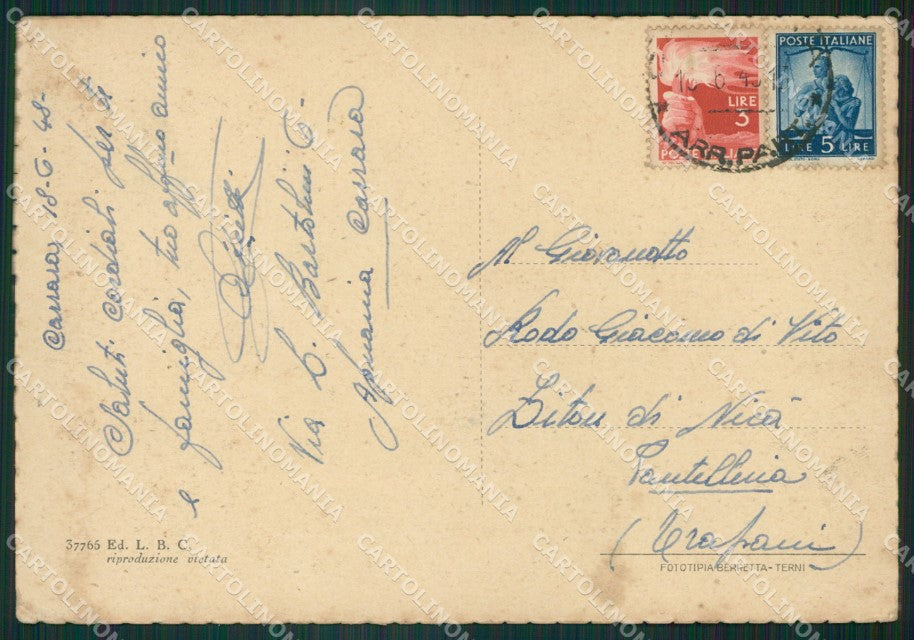 Carrara, 18-6-48-
Saluti cordiali per te
e famiglia, tuo affimo amico
Via C. Bartolini 6-
Carrara
POSTE ITALIANE
LIRE 3
POSTE
LIRE 5 LIRE
ARR. PA
Mo Giovanotto
Rodo Giacomo di Vito
di Nicà
Pantelleria
(Trapani)
37765 Ed. L. B. C.
riproduzione vietata
FOTOTIPIA BERRETTA - TERNI
CARTOLINOMANIA